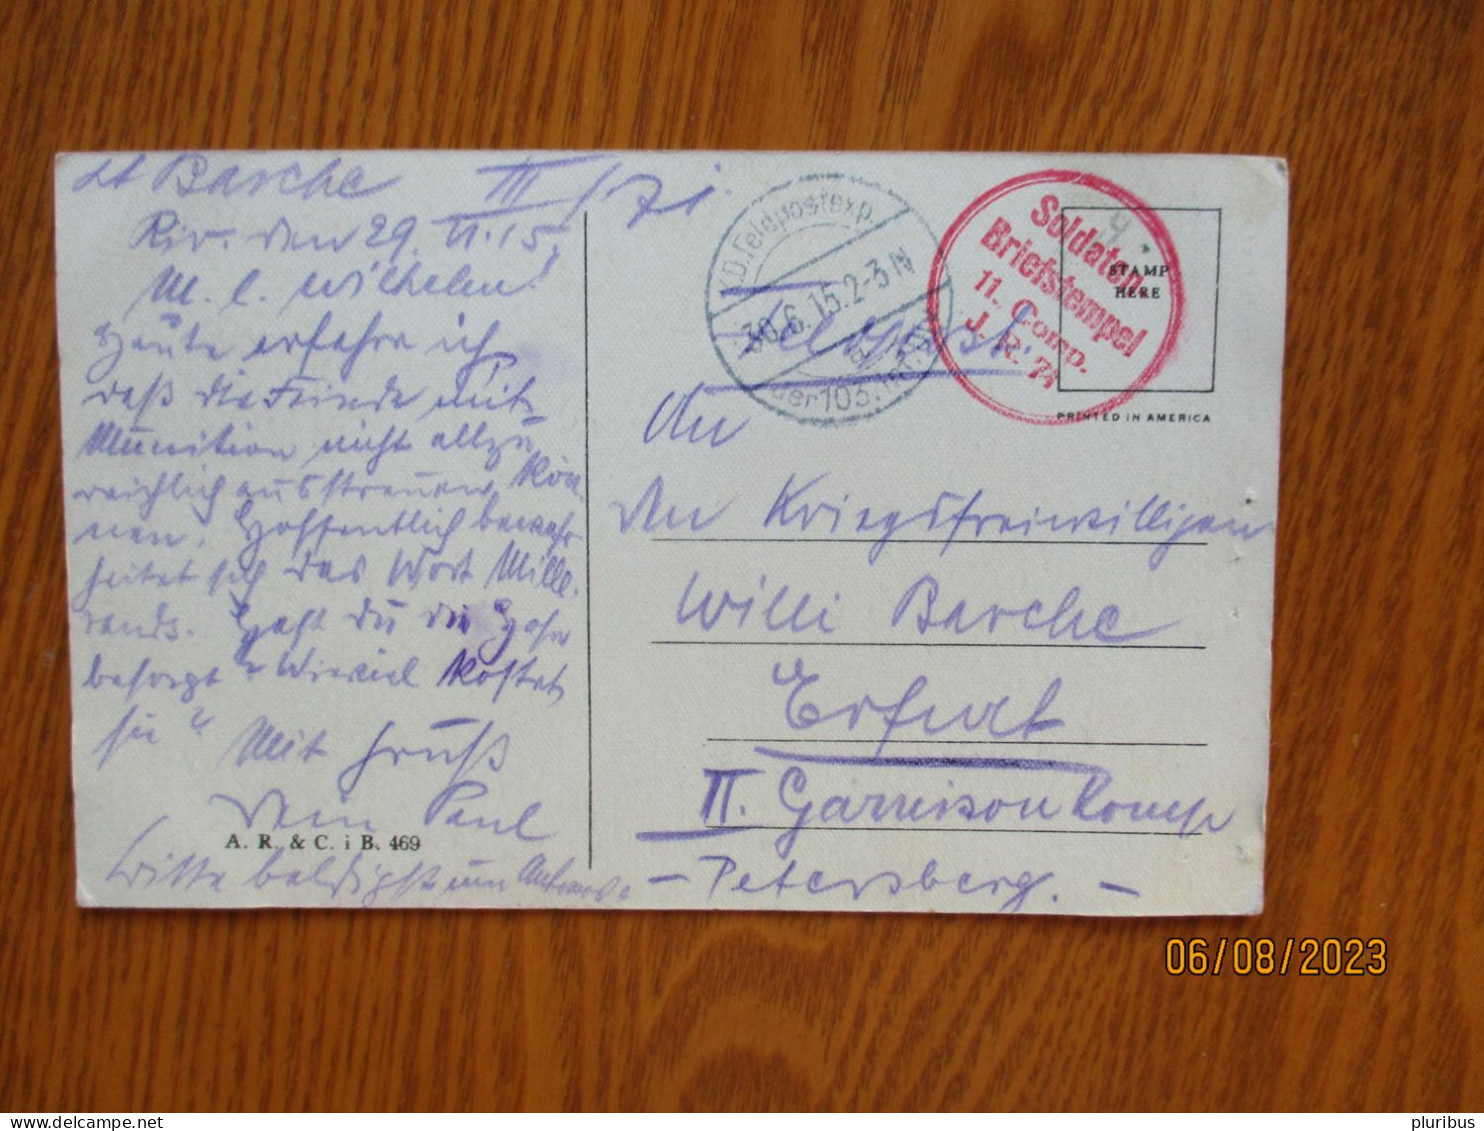 Lt Barche III/71.
Riv. den 29. VI. 15.
M. l. Wilhelm!
Heute erfahre ich,
daß die Feinde mit
Munition nicht allzu
reichlich ausstreuen kön-
nen. Hoffentlich bewahr-
heitet sich das Wort Mille-
rands. Hast du die Hose
besorgt? Wieviel kostet
sie? Mit Gruß
Dein Paul
A. R. & C. i B. 469
Bitte baldigst um Antwort.
K.D. Feldpostexp.
30.6.15. 2-3 N
der 103. Inf. Div.
Soldaten
Briefstempel
11. Comp.
J. R. 71
9
STAMP
HERE
PRINTED IN AMERICA
Feldpost.
An
den Kriegsfreiwilligen
Willi Barche
Erfurt
II. Garnison Komp
- Petersberg. -
06/08/2023
pluribus